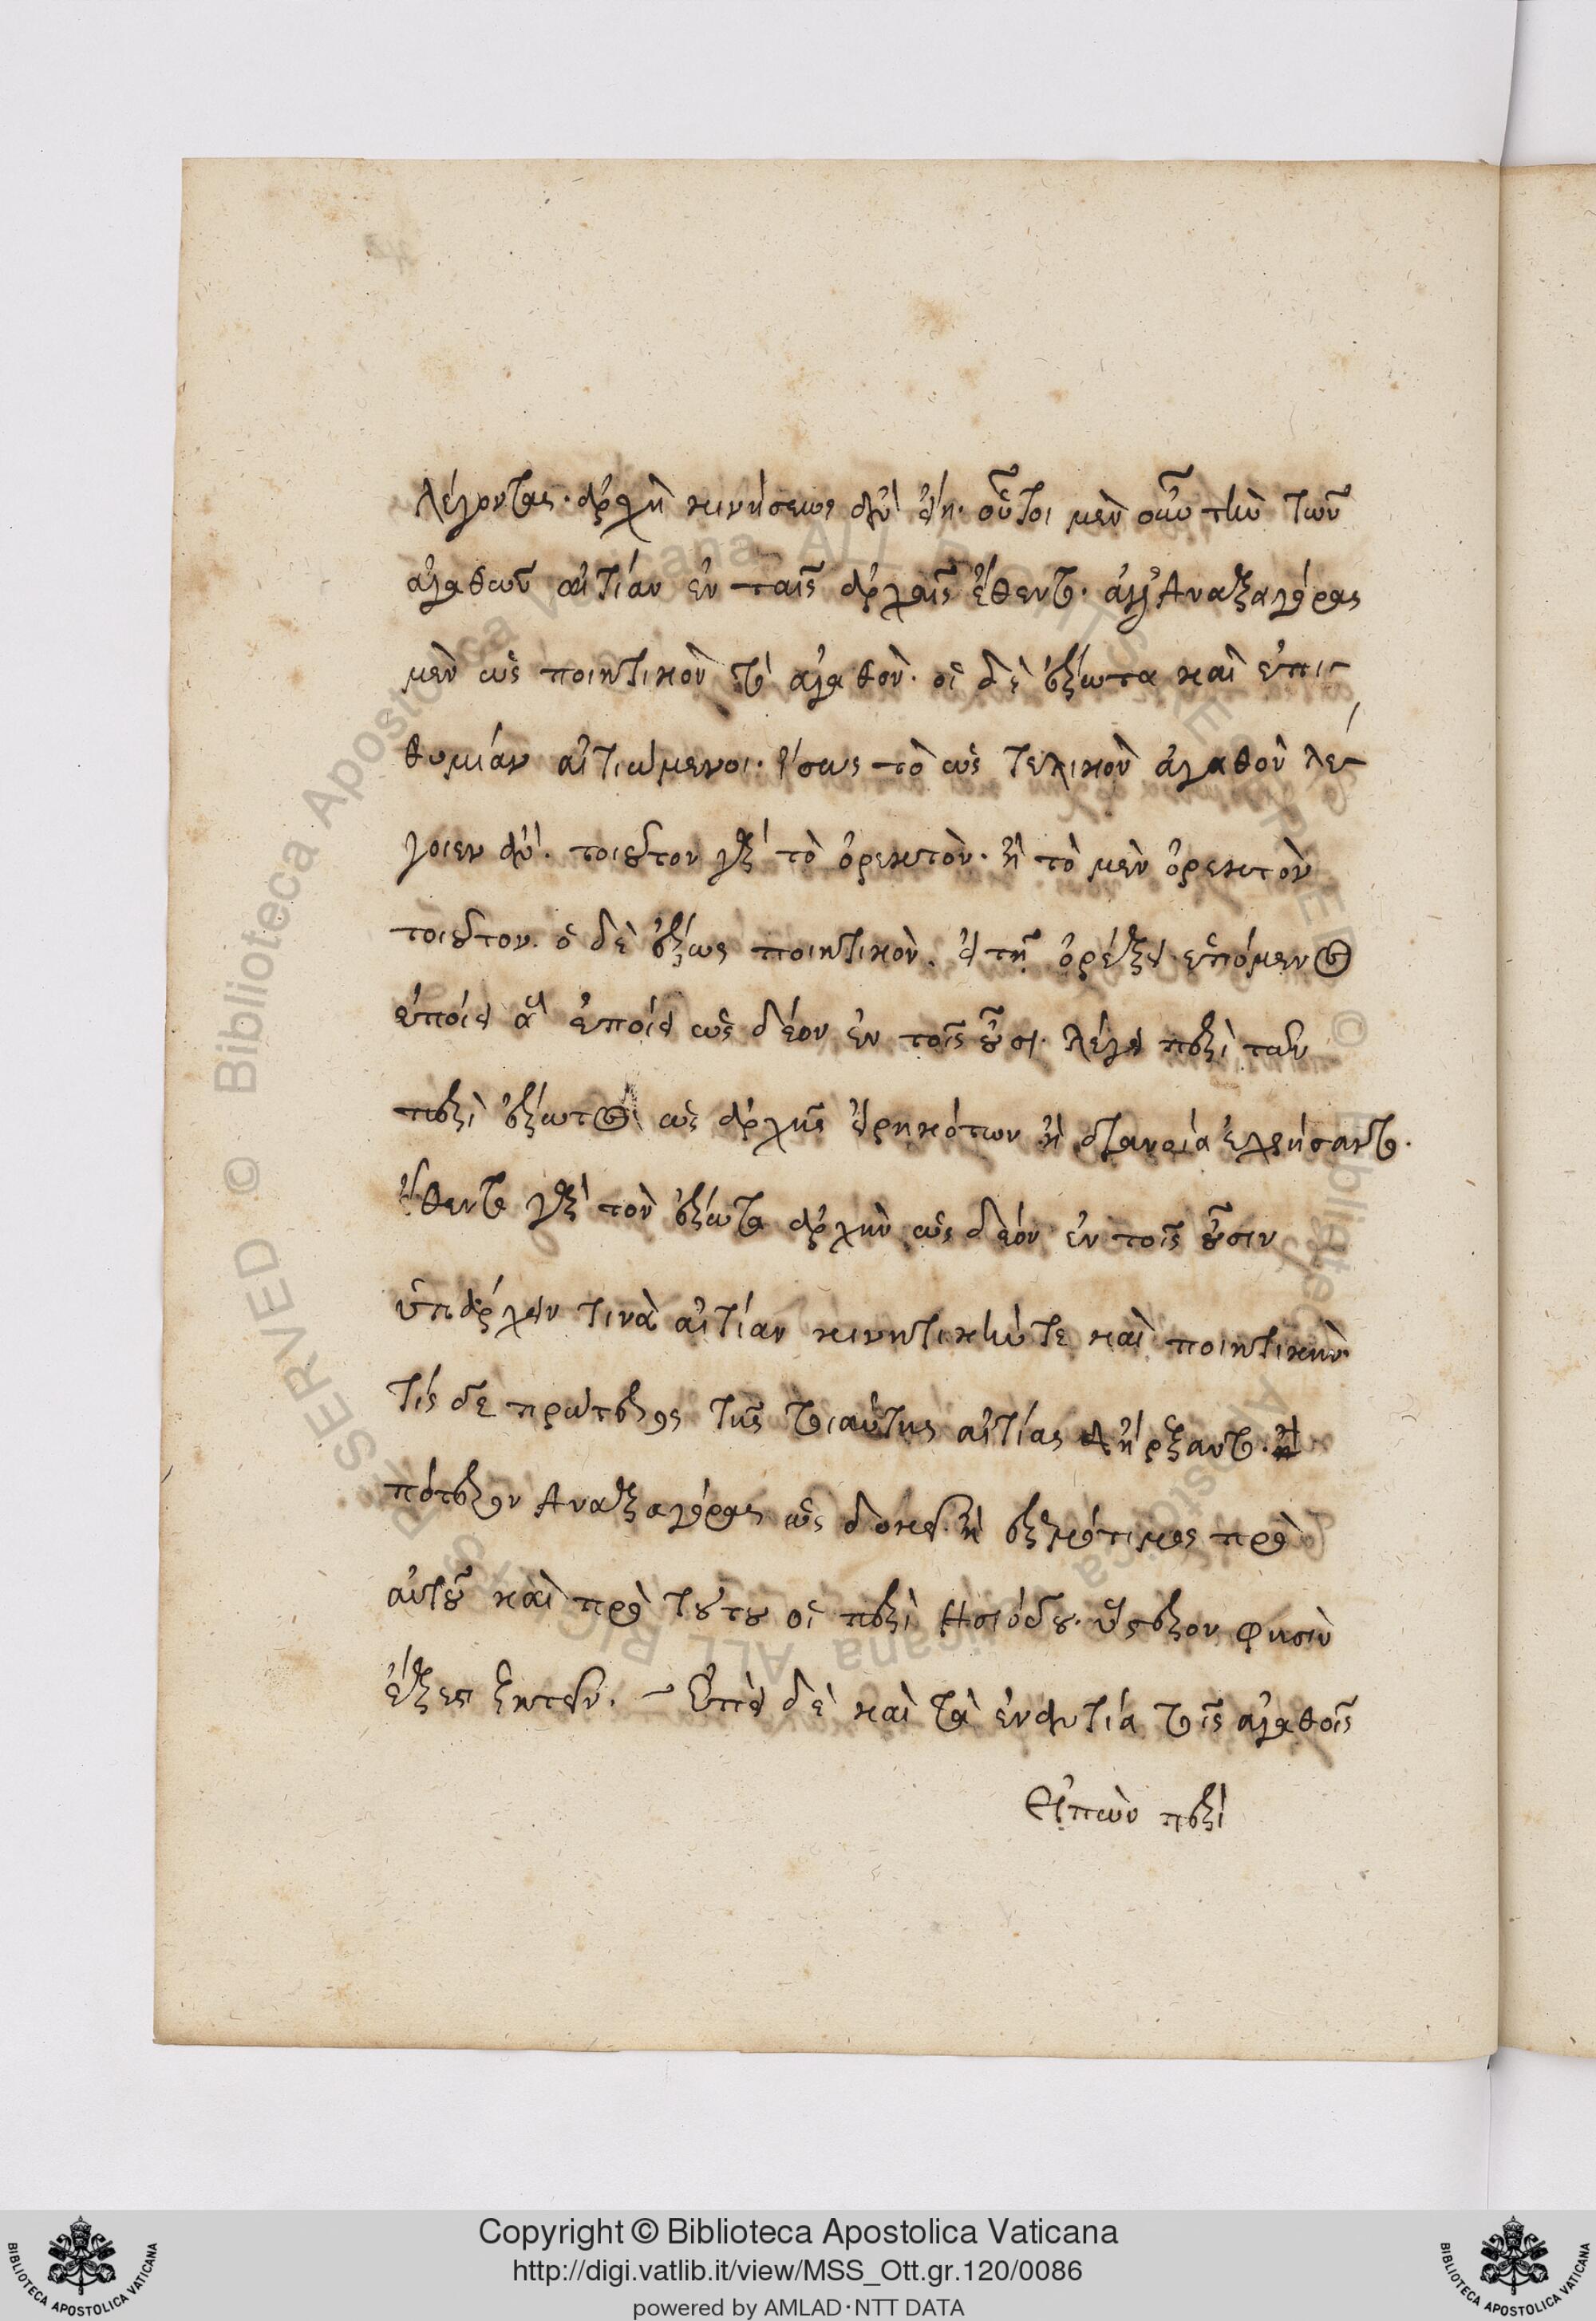 λέγοντας· ἀρχὴ κινήσεως ἂν εἴη· οὗτοι μὲν οὖν τὴν τῶν
ἀγαθῶν αἰτίαν ἐν ταῖς ἀρχαῖς ἔθεντο· ἀλλ' Ἀναξαγόρας
μὲν ὡς ποιητικὸν τὸ ἀγαθὸν· οἱ δὲ ἔρωτα καὶ ἐπι-
θυμίαν αἰτιώμενοι· ἴσως τὸ ὡς τελικὸν ἀγαθὸν λέ-
γοιεν ἂν· τοιοῦτον γὰρ τὸ ὀρεκτὸν· ἢ τὸ μὲν ὀρεκτὸν
τοιοῦτον· ὁ δὲ ἔρως ποιητικὸν· εἰ τῇ ὀρέξει ἑπόμενος
ἐποίει ἃ ἐποίει ὡς δέον ἐν τοῖς οὖσι· λέγει περὶ τῶν
περὶ ἔρωτος ὡς ἀρχῆς εἰρηκότων ἢ διανοία χρησαντο·
ἔθεντο γὰρ τὸν ἔρωτα ἀρχὴν ὡς δέον ἐν τοῖς οὖσιν
ὑπάρχειν τινὰ αἰτίαν κινητικήν τε καὶ ποιητικὴν
τίς δὲ πρώτερος τῆς τοιαύτης αἰτίας ἤρξαντο·
πότερον Ἀναξαγόρας ὡς δοκεῖ· ἢ Ἑρμότιμος πρὸ
αὐτοῦ καὶ πρὸ τούτου οἱ περὶ Ἡσιόδου· ὕστερον φησὶν
ἔξεστι ζητεῖν. – Ἐπεὶ δὲ καὶ τὰ ἐναντία τοῖς ἀγαθοῖς
Εἰπὼν περὶ
Copyright © Biblioteca Apostolica Vaticana
http://digi.vatlib.it/view/MSS_Ott.gr.120/0086
powered by AMLAD·NTT DATA